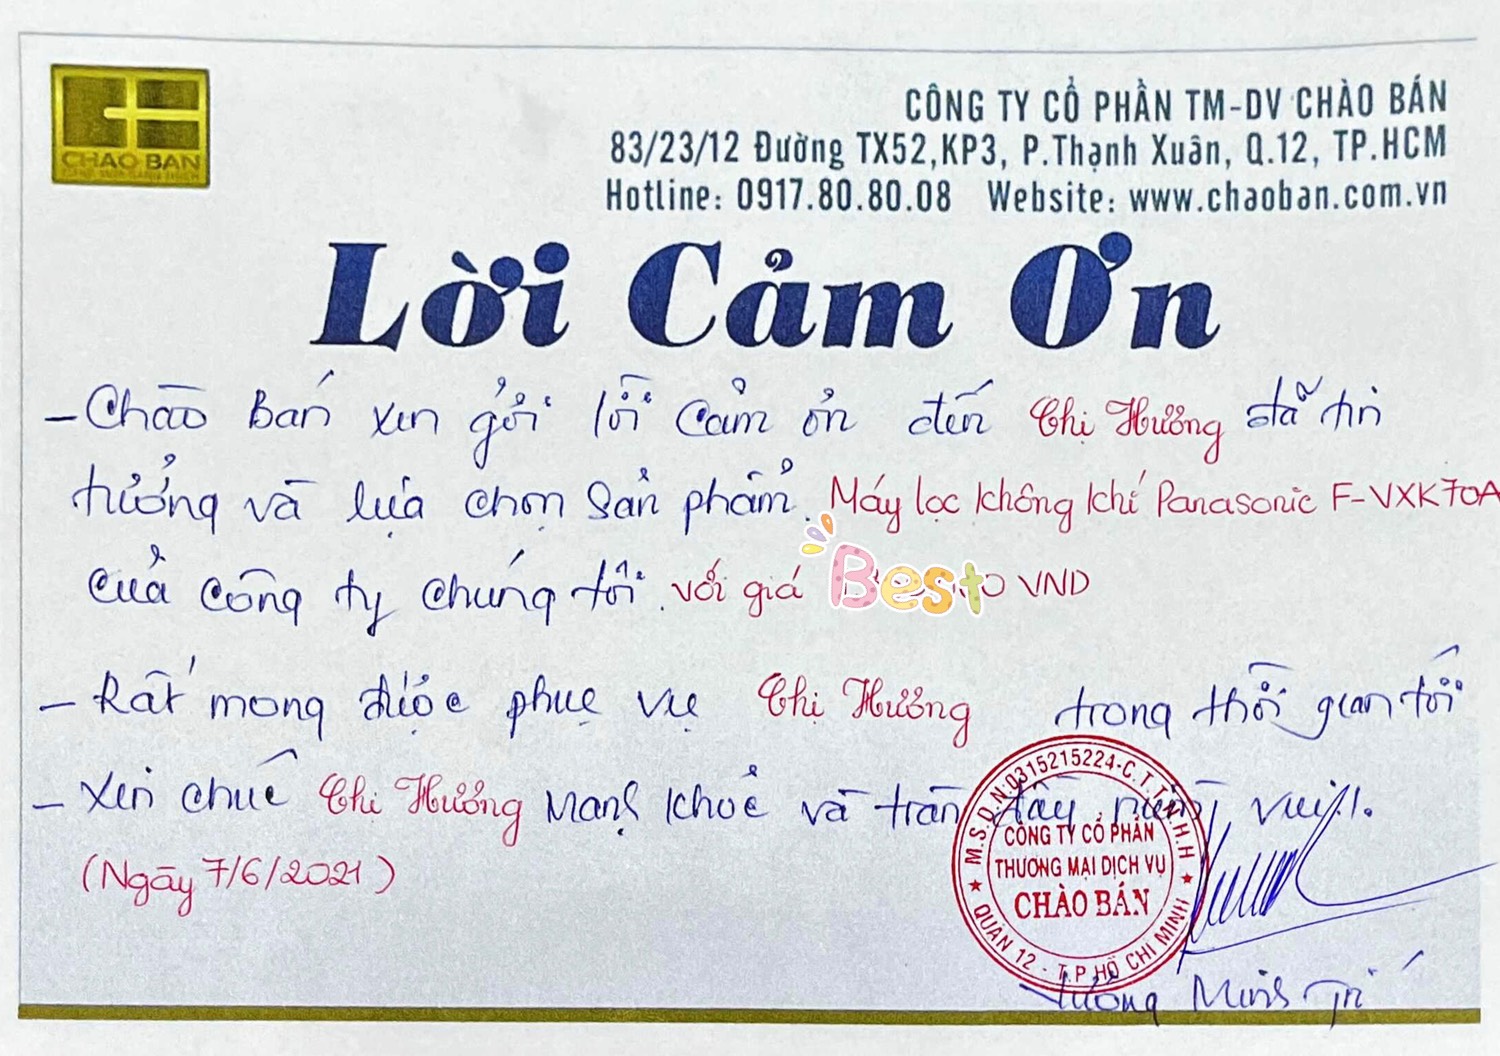 CHAO BAN
CÔNG TY CỔ PHẦN TM-DV CHÀO BÁN
83/23/12 Đường TX52,KP3, P.Thạnh Xuân, Q.12, TP.HCM
Hotline: 0917.80.80.08 Website: www.chaoban.com.vn
Lời Cảm Ơn
- Chào Bán xin gửi lời cảm ơn đến Chị Hương đã tin
tưởng và lựa chọn sản phẩm. Máy lọc không khí Panasonic F-VXK70A
của công ty chúng tôi. với giá Best VND
- Rất mong được phục vụ Chị Hương trong thời gian tới
- Xin chúc Chị Hương mạnh khoẻ và tràn đầy niềm vui!.
(Ngày 7/6/2021)
M.S.D.N:0315215224-C.T.T.N.H.H
CÔNG TY CỔ PHẦN
THƯƠNG MẠI DỊCH VỤ
CHÀO BÁN
QUẬN 12 - T.P HỒ CHÍ MINH
Minh Trí